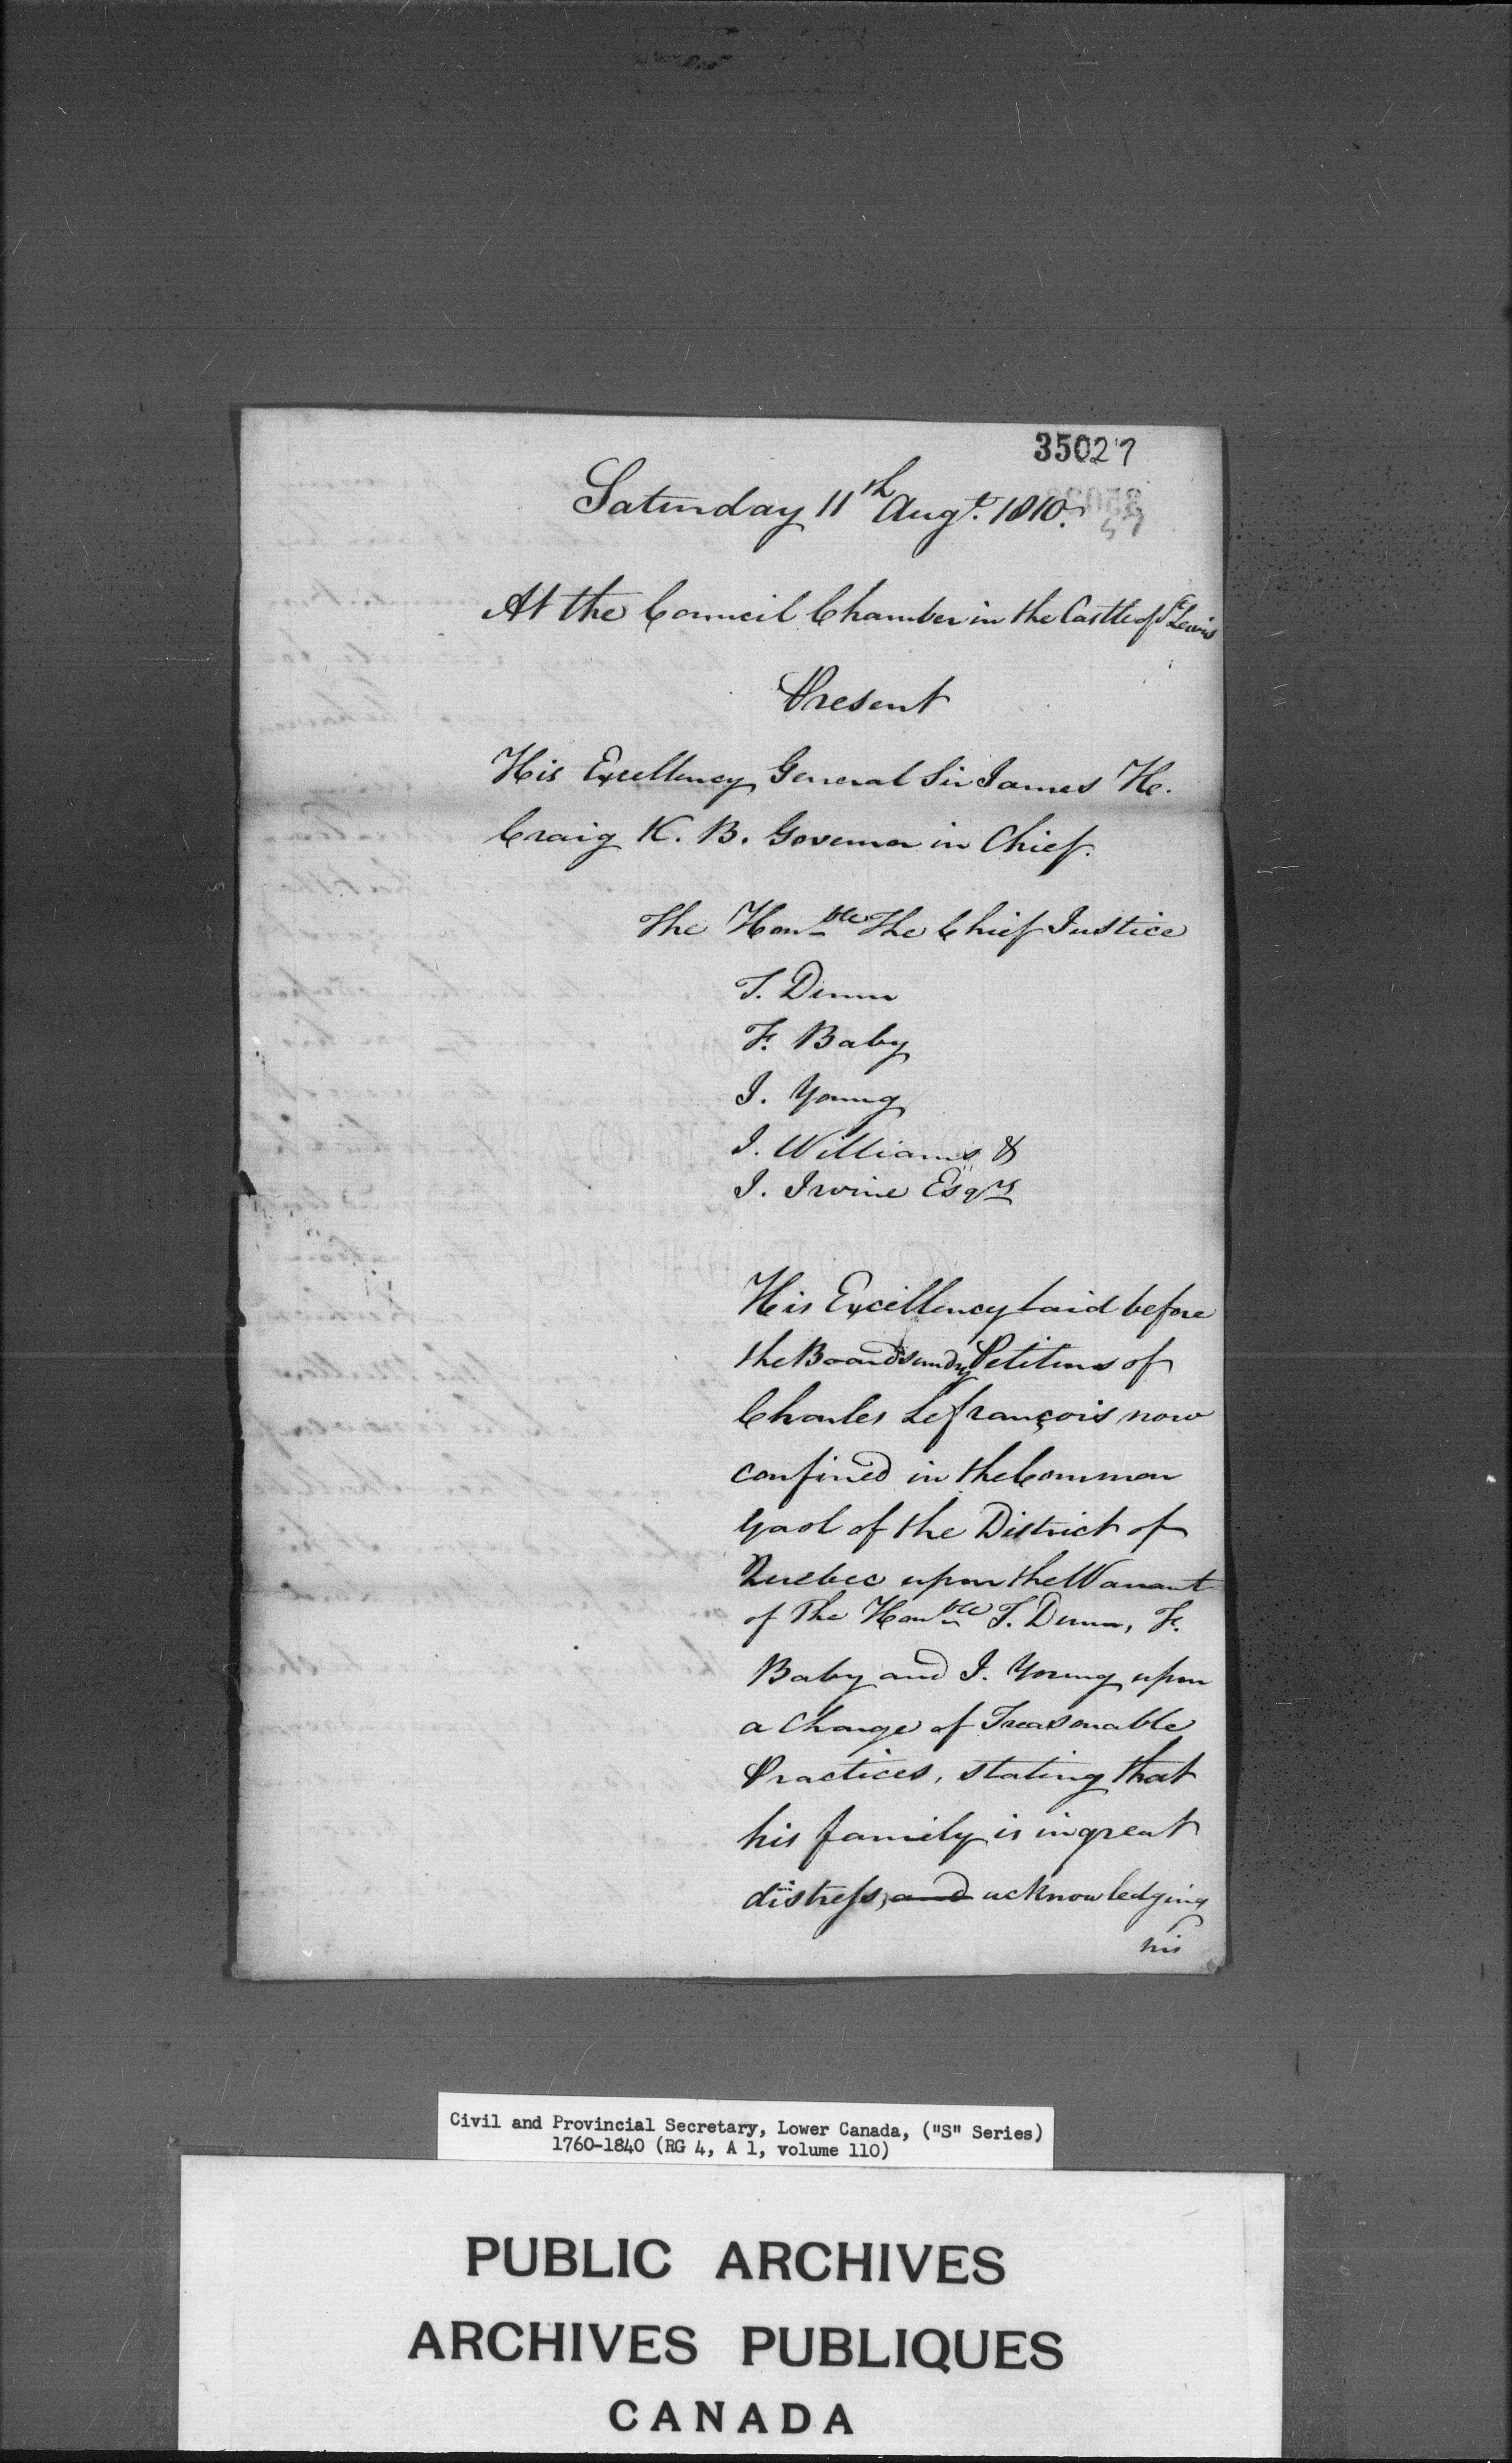 35027
Saturday 11th Augt. 1810.
At the Council Chamber in the Castle of St Lewis
Present
His Excellency General Sir James H.
Craig K. B. Governor in Chief.
The Honble The Chief Justice
T. Dunn
F. Baby
J. Young
J. Williams &
J. Irvine Esqrs
His Excellency laid before
the Board sundry Petitions of
Charles Lefrançois now
confined in the Common
Gaol of the District of
Quebec upon the Warrant
of The Honble T. Dunn, F.
Baby and J. Young upon
a Charge of Treasonable
Practices, stating that
his family is in great
distress, and acknowledging
his
Civil and Provincial Secretary, Lower Canada, ("S" Series)
1760-1840 (RG 4, A 1, volume 110)
PUBLIC ARCHIVES
ARCHIVES PUBLIQUES
CANADA